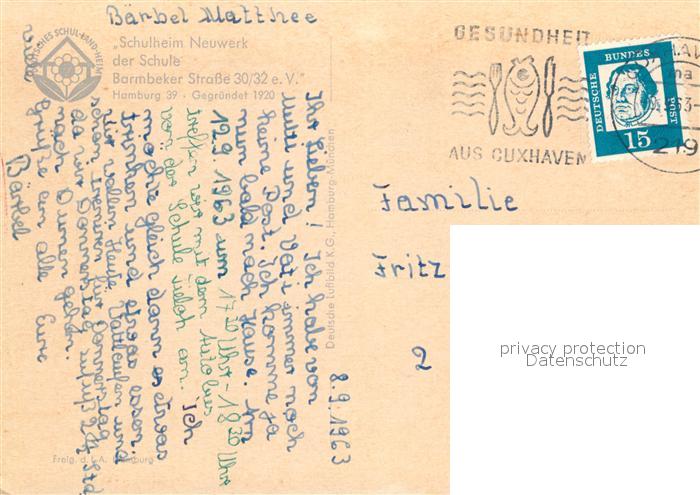 Bärbel Matthee
DEUTSCHES SCHUL-LAND-HEIM
„Schulheim Neuwerk
der Schule
Barmbeker Straße 30/32 e. V."
Hamburg 39 · Gegründet 1920
GESUNDHEIT
AUS CUXHAVEN
DEUTSCHE BUNDES POST
15
219
8.9.1963
Ihr Lieben! Ich habe von
Mutti und Vati immer noch
keine Post. Ich komme ja
nun bald nach Hause. Am
12.9.1963 um 17 20 Uhr - 18 30 Uhr
treffen wir mit dem Autobus
von der Schule Zielch ein. Ich
möchte gleich dann etwas
trinken und etwas essen.
Wir wollen Heute Wattlaufen und
schon trainieren für Donnerstag
da wir Donnerstag zu Fuß 2½ Std
nach Duhnen gehen.
viele Grüße an alle Eure
Bärbel
Deutsche Luftbild K.G., Hamburg-München
Familie
Fritz
2
privacy protection
Datenschutz
Freig. d. L.A. Hamburg